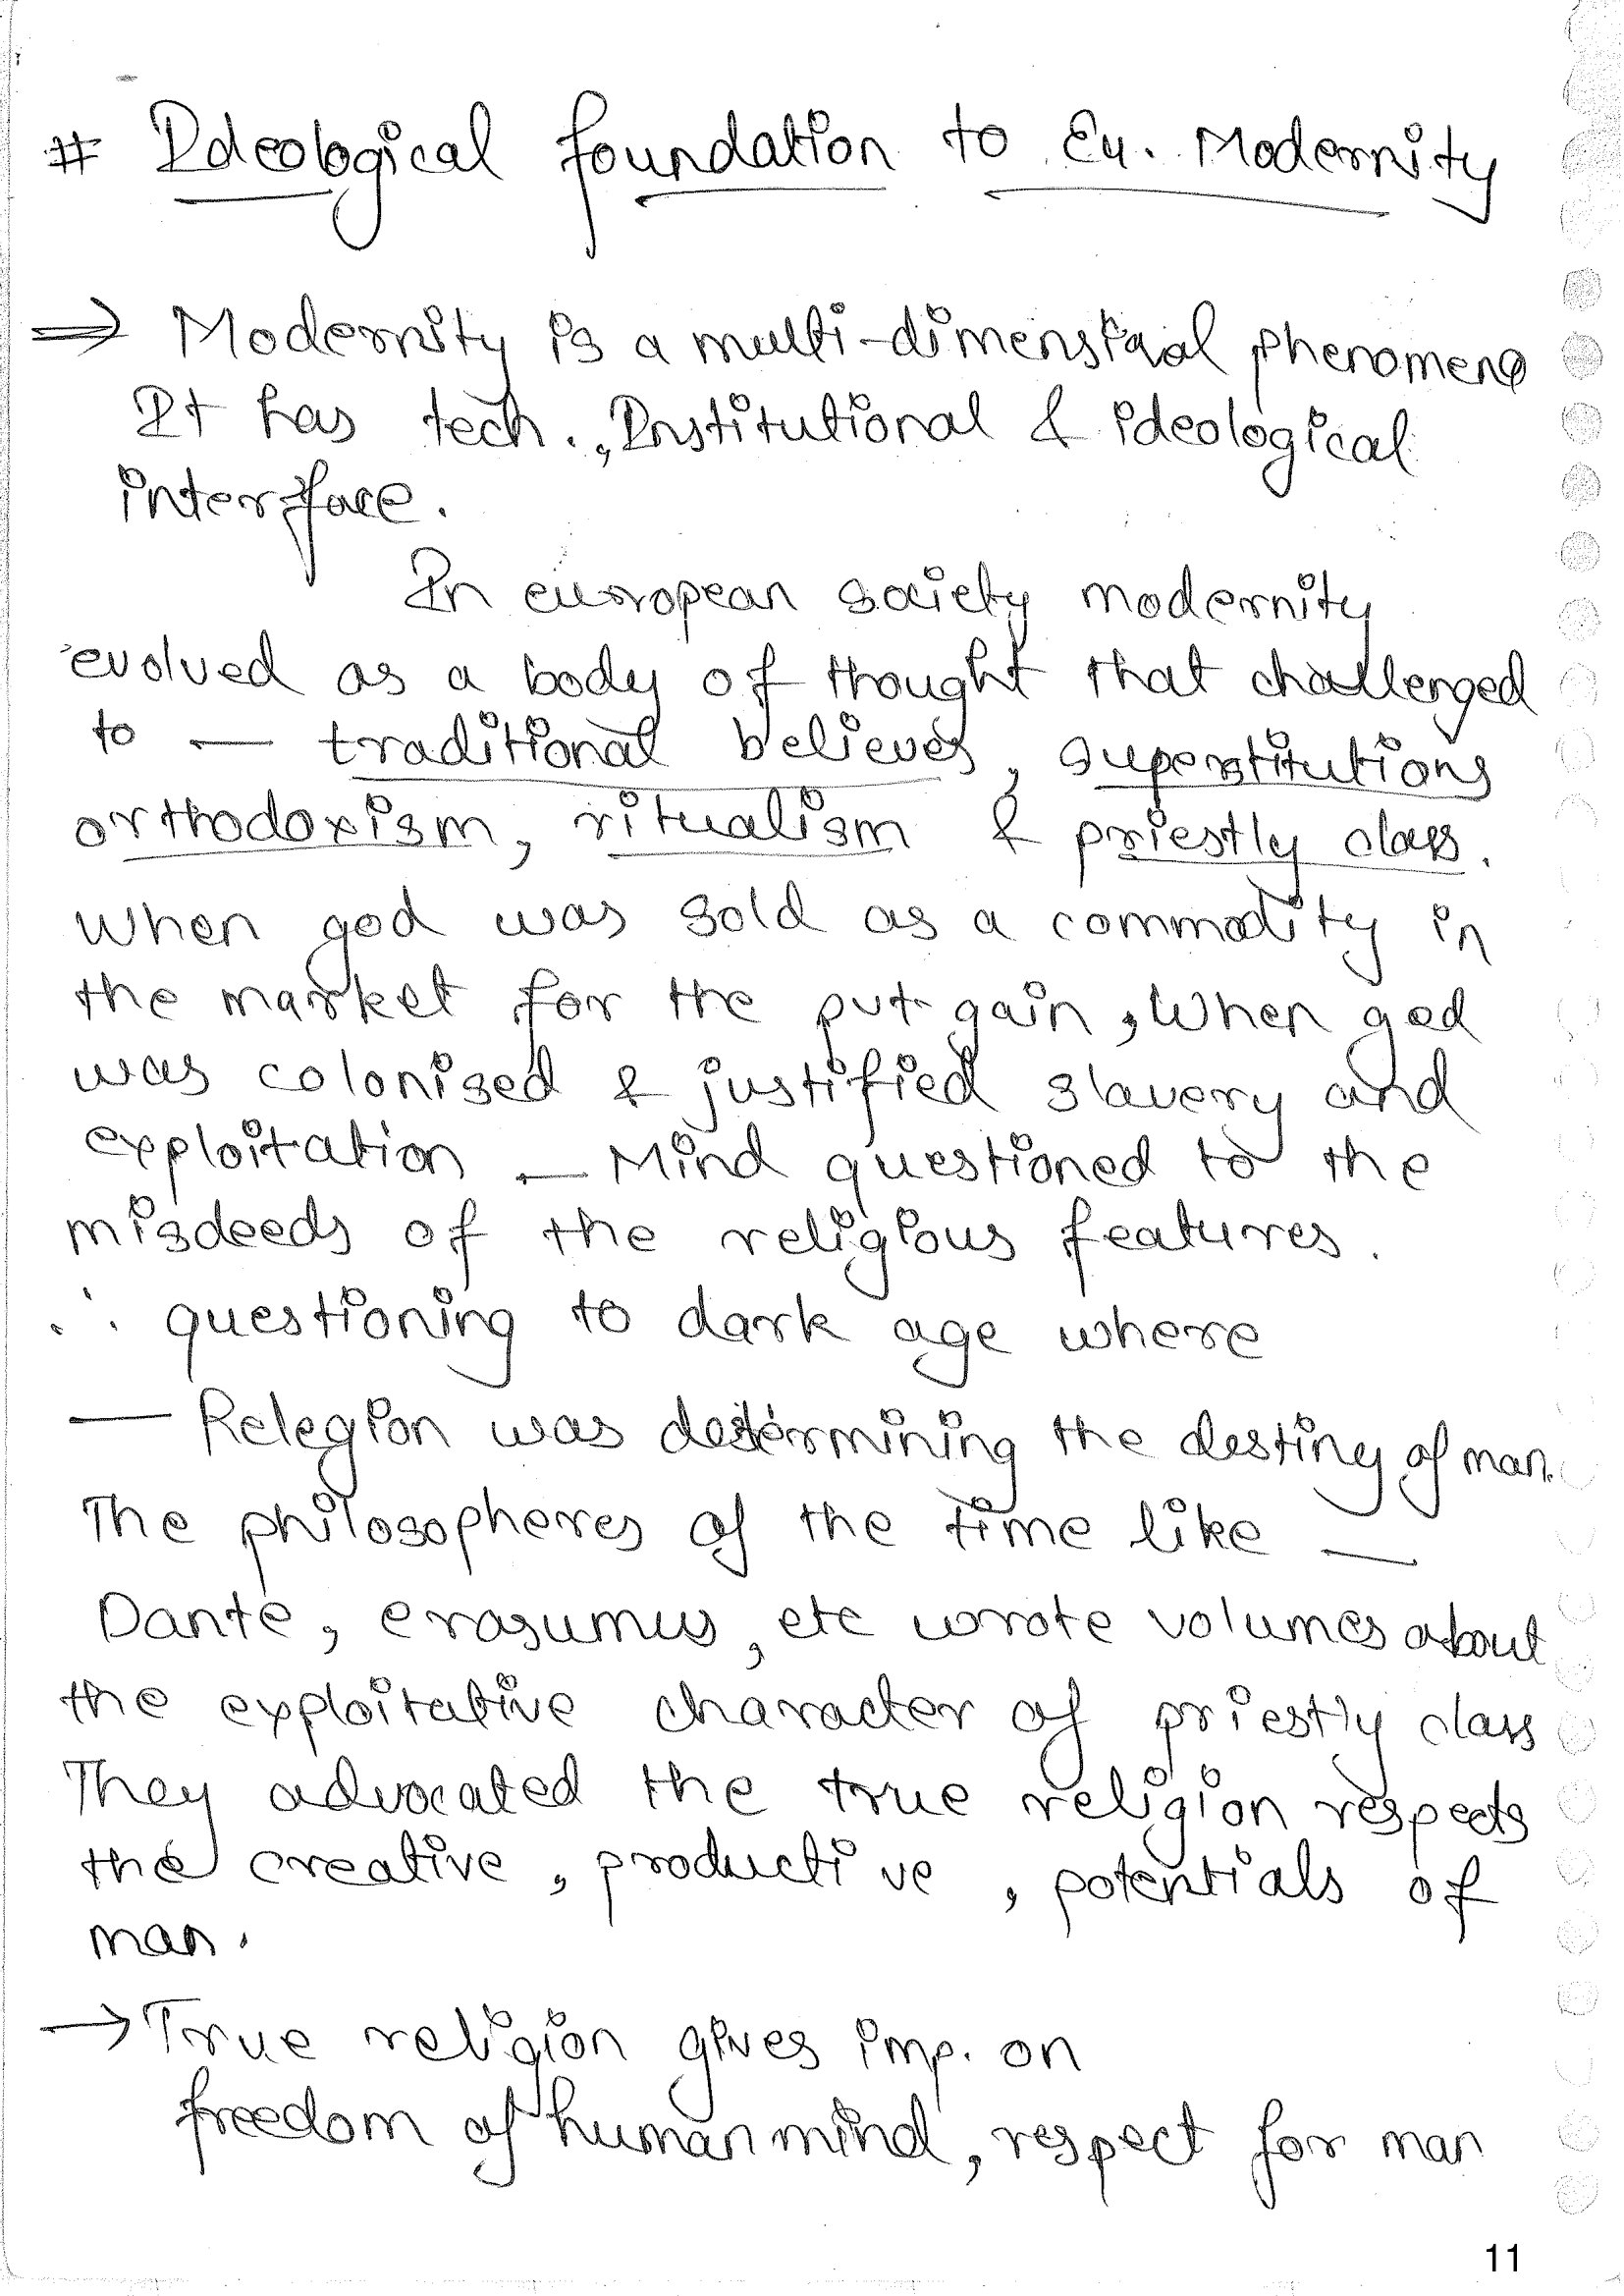 # Ideological foundation to Eu. Modernity
⇒ Modernity is a multi-dimensional phenomena
It has tech., Institutional & ideological
interface.
In european society modernity
evolved as a body of thought that challenged
to — traditional believes, superstitutions
orthodoxism, ritualism & priestly class.
When god was sold as a commodity in
the market for the pvt gain, When god
was colonised & justified slavery and
exploitation — Mind questioned to the
misdeeds of the religious features.
∴ questioning to dark age where
— Relegion was determining the destiny of man.
The philosopheres of the time like —
Dante, erasumus, etc wrote volumes about
the exploitative character of priestly class
They advocated the true religion respects
the creative, productive, potentials of
man.
→ True religion gives imp. on
freedom of human mind, respect for man
11